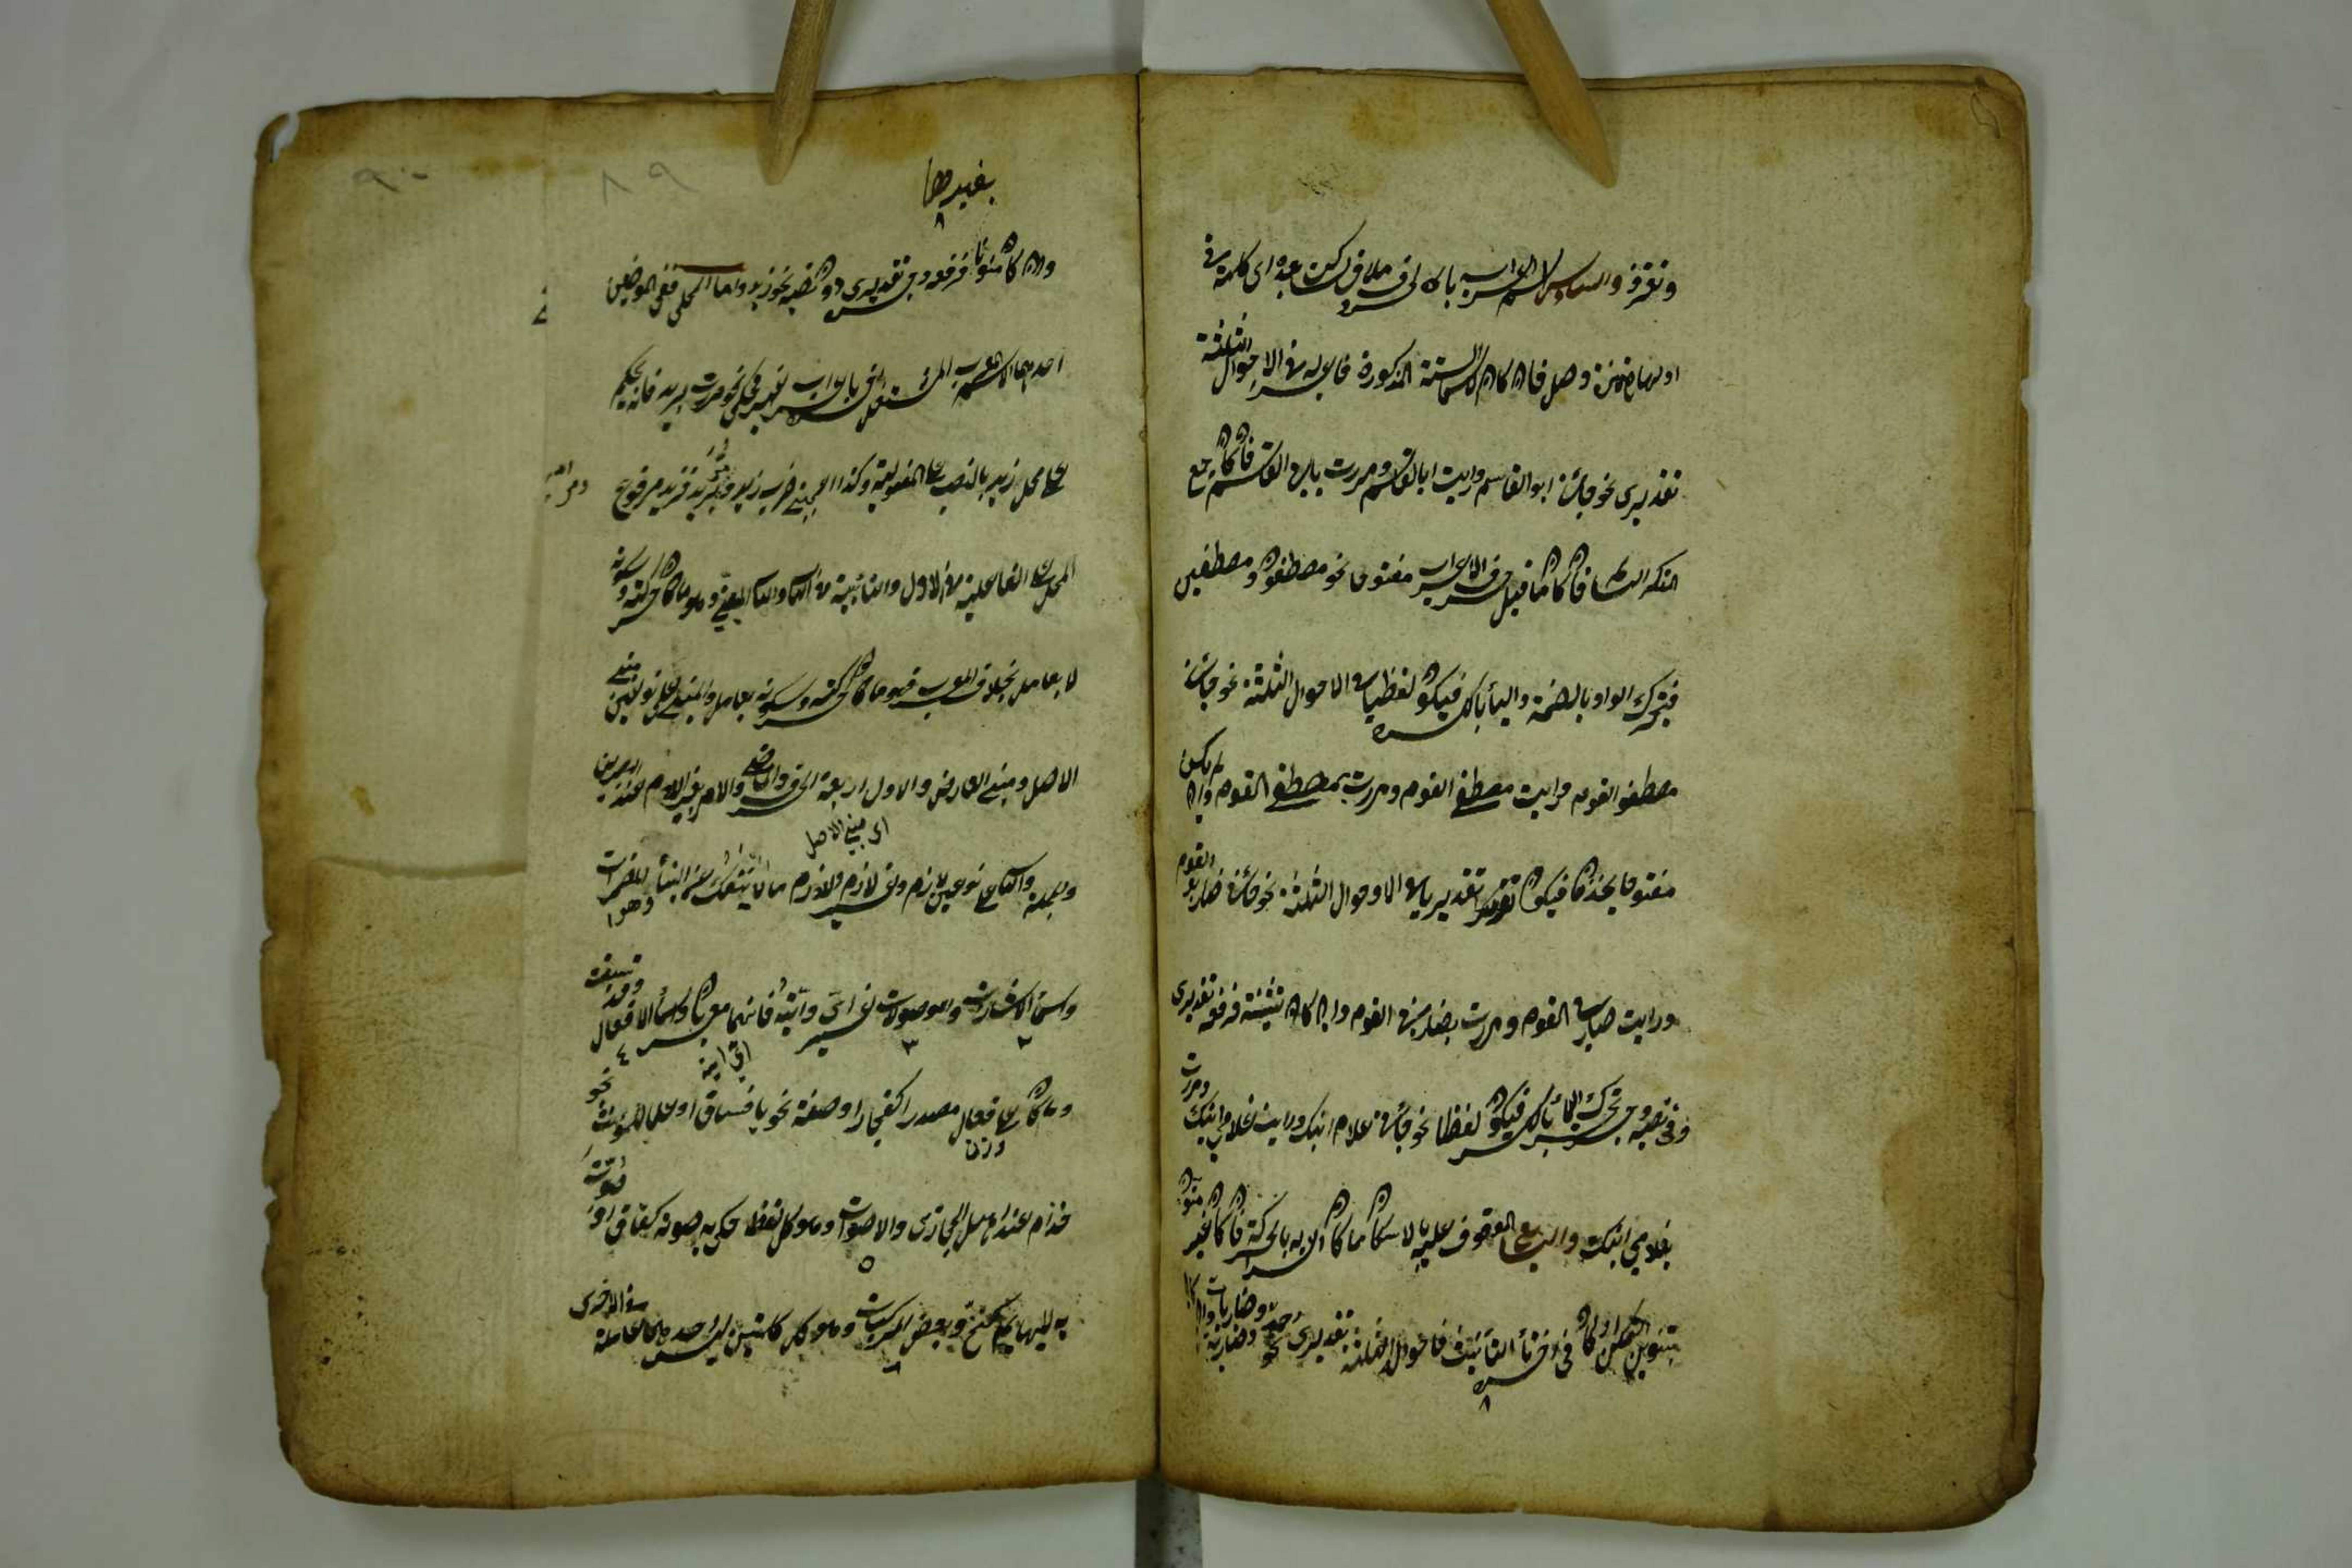 وتقرؤ والسادس الاسم المعرب بالحروف ملاق لساكن بعده اى كلمة في
اولها همزة وصل فان كان من الاسماء الستة المذكورة فاعرابه في الاحوال الثلثة
تقديرى نحو جائنى ابو القاسم ورايت ابا القاسم ومررت بابى القاسم فان كان جمع
المذكر السالم فان كان ما قبل حرف الاعراب مفتوحا نحو مصطفون ومصطفين
فيحرك الواو بالضمة والياء بالكسرة فيكون لفظيا في الاحوال الثلثة نحو جائنى
مصطفو القوم ورايت مصطفى القوم ومررت بمصطفى القوم وان لم يكن
مفتوحا يحذفان فيكون تقديريا في الاحوال الثلثة نحو جائنى ضاربو القوم
ورايت ضاربى القوم ومررت بضاربى القوم وان كان تثنية فرفعه تقديرى
وفى نصبه وجره يحرك الياء بالكسرة فيكون لفظا نحو جائنى غلاما ابنك ورايت غلامى ابنك ومررت
بغلامى ابنك والسابع الموقوف عليه بالاسكان ما كان اعرابه بالحركة فان كان غير منون
بتنوين التمكن او كان فى اخره تاء التانيث فاحواله الثلثة تقديرى نحو احمد وضاربة وضاربات وان كان
بغيرها
وان كان منونا فرفعه وجره تقديرى دون نصبه نحو زيد واما المحلى ففى الموضعين
احدهما الاسم المعرب المشتغل اخره باعراب غير محكى نحو مررت بزيد فانه يحكم
على محل زيد بالنصب على المفعولية وكذا اعجبنى ضرب زيد ومر بزيد فزيد مرفوع
المحل على الفاعلية في الاول والنائبية في الثانى والثانى المبنى وهو ما كان حركته وسكونه
لا بعامل بخلاف المعرب فهو ما كان حركته وسكونه بعامل والمبنى على نوعين مبنى
الاصل ومبنى العارض والاول اربعة الحرف والماضى والامر بغير اللام عند البصريين
اى مبنى الاصل
والجملة والثانى على نوعين لازم وغير لازم واللازم ما لا ينفك عنه البناء وهو المضمرات
واسماء الاشارات والموصولات غير اىّ وايّة فانهما معربان واسماء الافعال وقد سبقت
وما كان على فعال مصدرا كفجار او صفة نحو يا فساق او علما للمؤنث نحو
وزن
حذام عند اهل الحجاز والاصوات وهو كل لفظ حكى به صوت كغاق او صوت
به للبهايم كنخ وبعض المركبات وهو كل كلمتين ليس احدهما عاملة في الاخرى